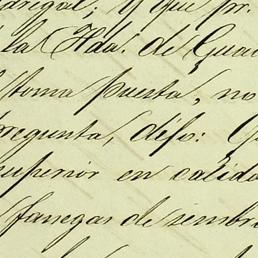 y que pr.
la Hda. de Gua
toma puesta, no
pregunta, dijo: Q
superior en calida
fanegas de sembra